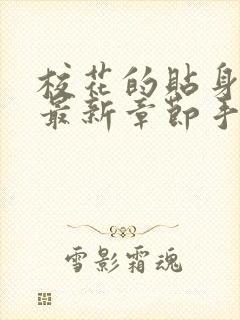 校花的貼身
最新章節手
雪影霜魂